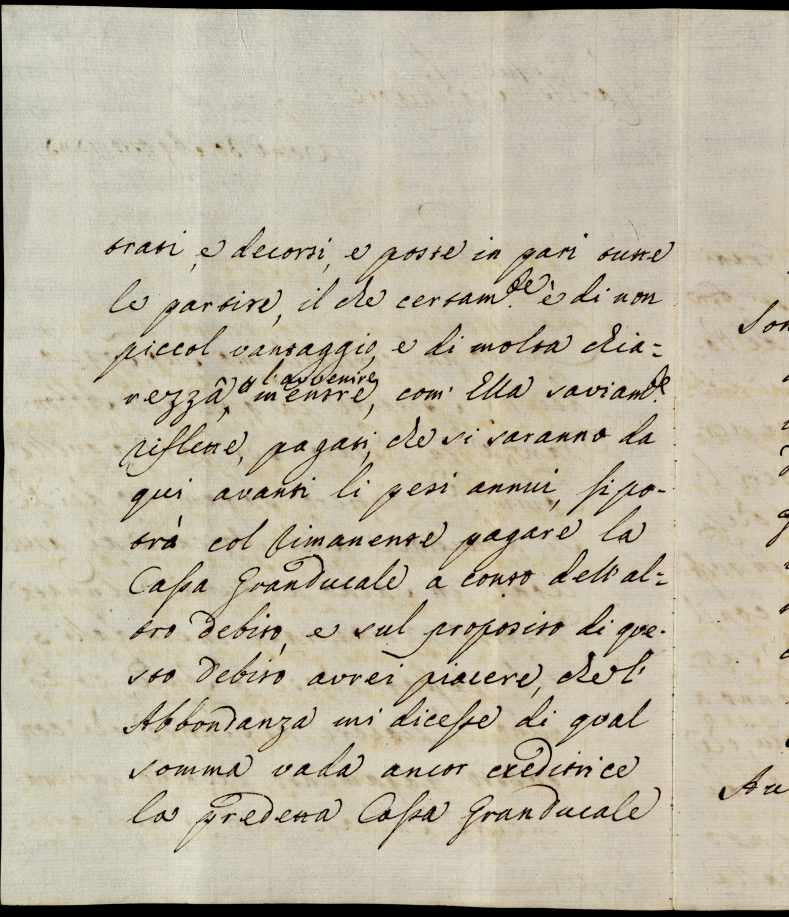 trati, e decorsi, e poste in pari tutte
le partite, il che certam.te è di non
piccol vantaggio, e di molta chia=
rezza p l'avvenire, mentre, com' Ella saviam.te
riflette, pagati, che si saranno da
qui avanti li pesi annui, si po-
trà col rimanente pagare la
Cassa Granducale a conto dell'al=
tro debito, e sul proposito di que-
sto debito avrei piacere, che l'
Abbondanza mi dicesse di qual
somma vada ancor creditrice
la predetta Cassa Granducale
Son
Au